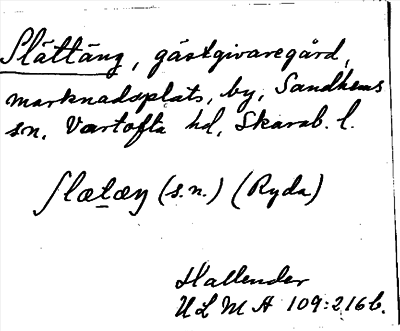 Slättäng, gästgivaregård,
marknadsplats, by, Sandhems
sn, Vartofta hd, Skarab. l.
slætæŋ (s.n.) (Ryda)
Hallender
ULMA 109:216 b.